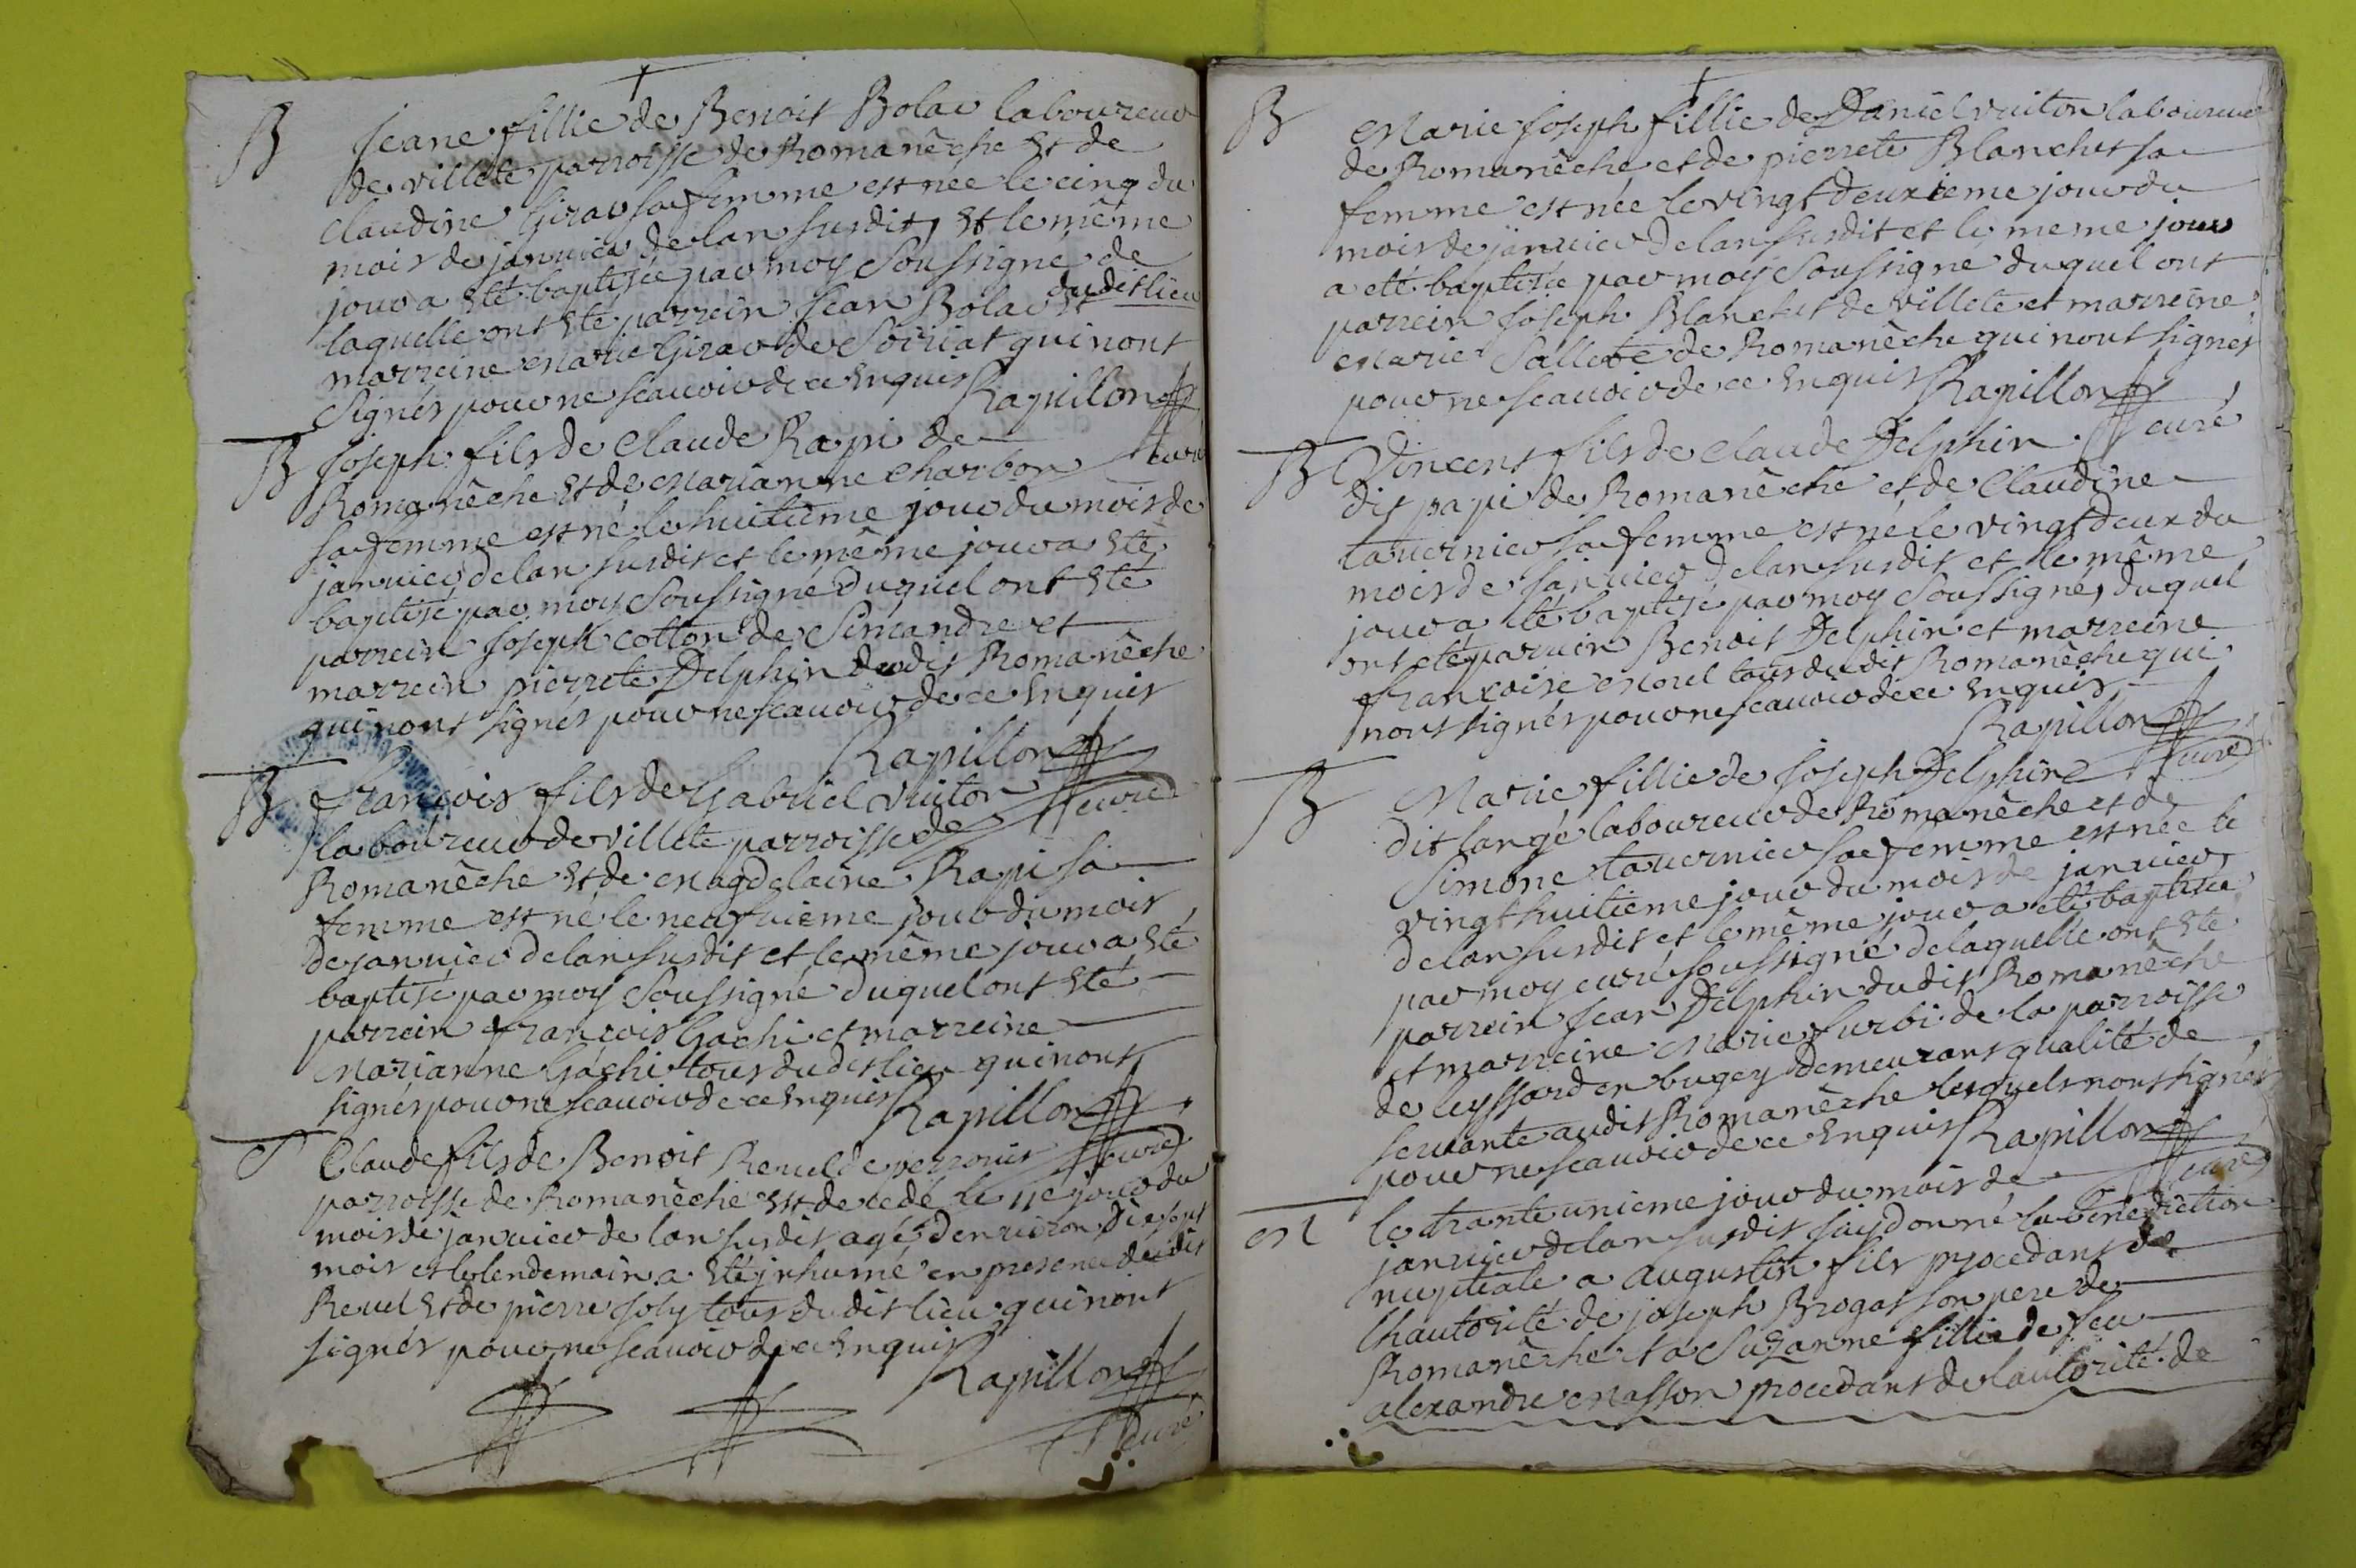 B Jeane fillie de Benoit Bolac laboureur
de villete parroisse de Romanêche et de
claudine Girau sa femme est née le cinq du
mois de janvier de lan susdit, et le même
jour a eté baptisée par moy soussigné de
laquelle ont eté parrein Jean Bolac et dudit lieu
marreine Marie Girau de Soiriat qui nont
signés pour ne scavoir de ce enquis Rapillon
curé
B Joseph fils de Claude Rapi de
Romanêche et de Marianne Charbon
sa femme est né le huitieme jour du mois de
janvier de lan susdit et le même jour a eté
baptisé par moy soussigné duquel ont eté
parrein Joseph cotton de Simandre et
marrein pierrete Delphin dudit Romanêche
qui nont signés pour ne scavoir de ce enquis
Rapillon
curé
B francois fils de Gabriel vuiton
laboureur de villete parroisse de
Romanêche et de Magdelaine Rapi sa
femme est né le neufvieme jour du mois
de janvier de lan susdit et le même jour a eté
baptisé par moy soussigné duquel ont eté
parrein francois Gachi et marreine
Marianne Gachi tous dudit lieu qui nont
signés pour ne scavoir de ce enquis Rapillon
curé
S Claude fils de Benoit Revel de
parroisse de Romanêche est decedé le 11e jour du
mois de janvier de lan susdit agé denviron dix sept
mois et le lendemain a eté jnhumé en presence dudit
Revel et de pierre Joly tous dudit lieu qui nont
signés pour ne scavoir de ce enquis
Rapillon
curé
B Marie Joseph fillie de Daniel vuiton laboureur
de Romanêche et de pierrete Blanchet sa
femme est née le vingt deuxieme jour du
mois de janvier de lan susdit et le meme jour
a eté baptisée par moy soussigné duquel ont
parrein Joseph Blanchet de villete et marreine
Marie Sallete de Romanêche qui nont signés
pour ne scavoir de ce enquis Rapillon
curé
B Vincent fils de Claude Delphin
dit papi de Romanêche et de Claudine
tavernier sa femme est né le vingt deux du
mois de janvier de lan susdit et le même
jour a eté baptisé par moy soussigné, duquel
ont eté parrein Benoit Delphin et marreine
francoise Morel tous dudit Romanêche qui
nont signés pour ne scavoir de ce enquis
Rapillon
curé
B Marie fillie de Joseph Delphin
dit langé laboureur de Romanêche et de
Simone tavernier sa femme est née le
vingt huitieme jour du mois de janvier
de lan susdit et le même jour a eté baptisée
par moy curé soussigné de laquelle ont eté
parrein Jean Delphin dudit Romanêche
et marreine Marie furbi de la parroisse
de leyssard en bugey demeurant qualité de
servante audit Romanêche lesquels nont signés
pour ne scavoir de ce enquis Rapillon
curé
M le trante unieme jour du mois de
janvier de lan susdit jay donné la benediction
nuptiale a augustin fils procedant de
lhautorité de joseph Brogat son pere de
Romanêche et a Suzanne fillie de feu
alexandre Masson procedant de lautorité de